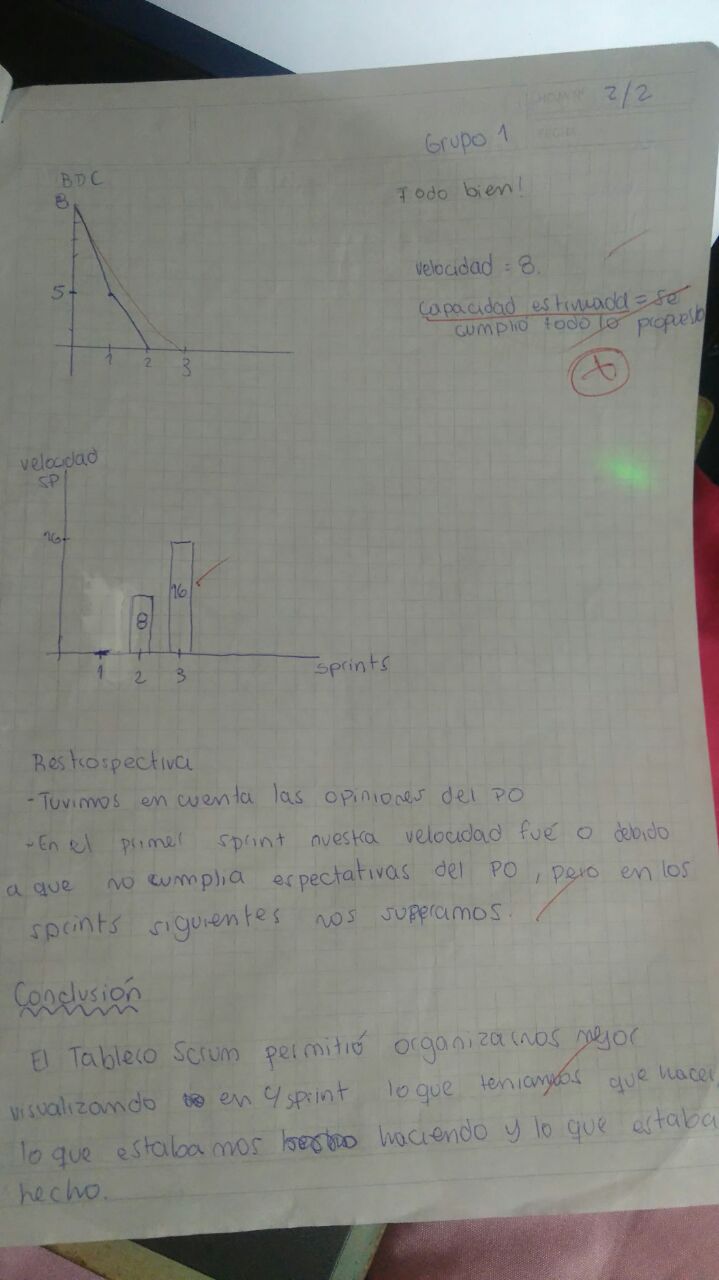 2/2
Grupo 1
BDC
Todo bien!
8
velocidad = 8.
5
capacidad estimada = se
cumplio todo lo propuesto
1 2 3
velocidad
SP
16
16
8
1 2 3
sprints
Restrospectiva
- Tuvimos en cuenta las opiniones del PO
- En el primer sprint nuestra velocidad fué 0 debido
a que no cumplia espectativas del PO, pero en los
sprints siguientes nos superamos.
Conclusión
El Tablero Scrum permitió organizarnos mejor
visualizando en c/sprint lo que teniamos que hacer,
lo que estabamos haciendo y lo que estaba
hecho.